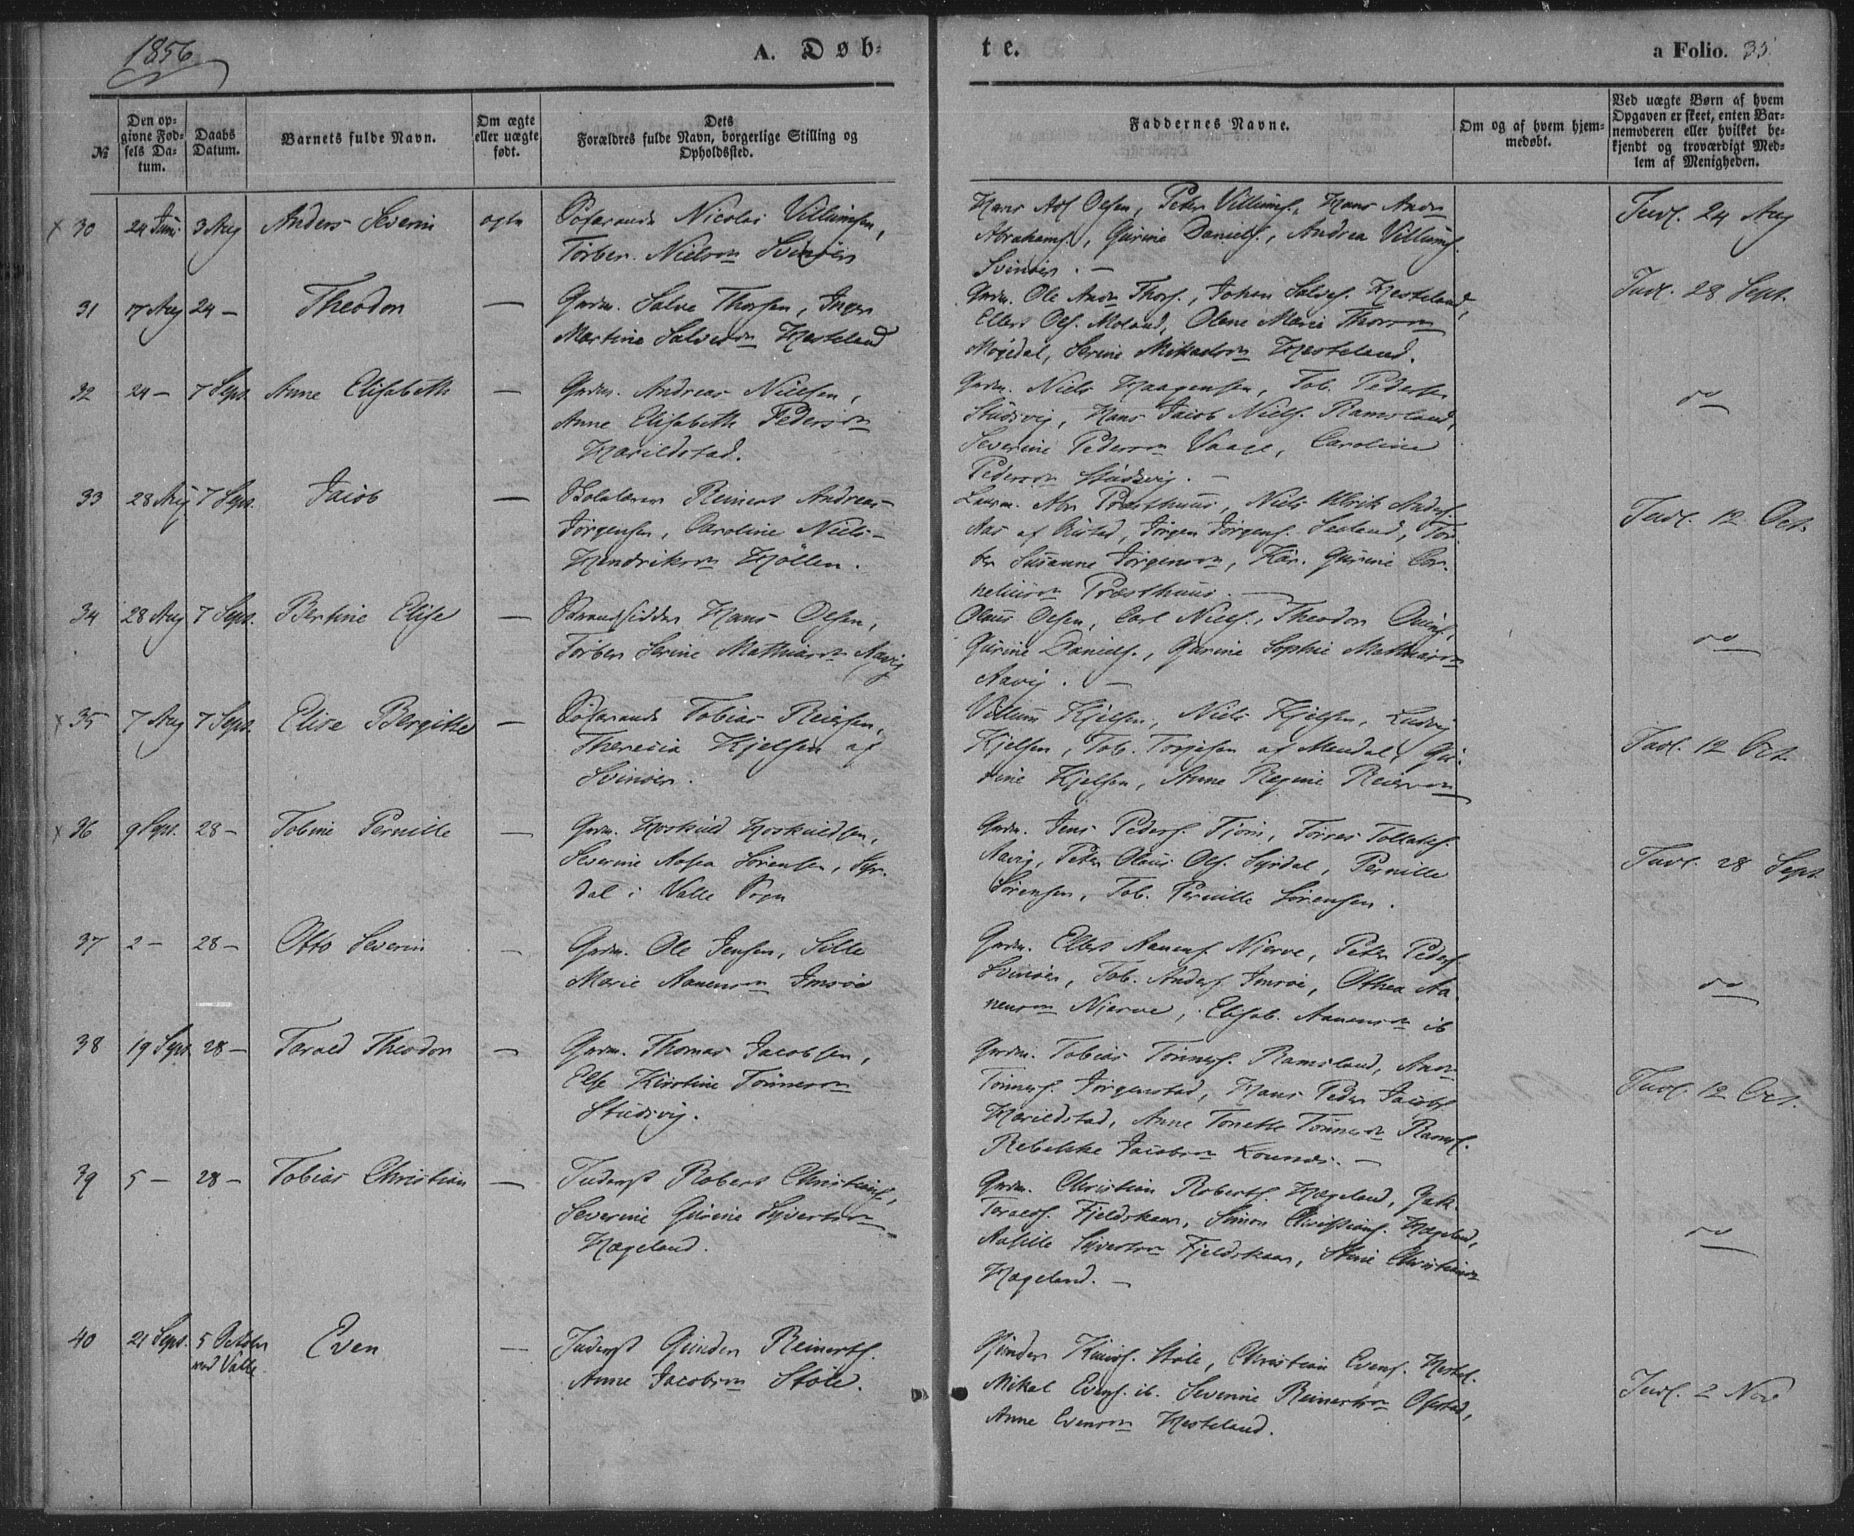 1856 A. Døb- te. a Folio. 35.
№
Den op-
givne Fød-
sels Da-
tum.
Daabs
Datum.
Barnets fulde Navn.
Om ægte
eller uægte
født.
Dets
Forældres fulde Navn, borgerlige Stilling og
Opholdssted.
Faddernes Navne.
Om og af hvem hjem-
medøbt.
Ved uægte Børn af hvem
Opgaven er skeet, enten Bar-
nemoderen eller hvilket be-
kjendt og troværdigt Med-
lem af Menigheden.
30 24 Juni 3 Aug Anders Severin ægte Søfarende Nicolai Villumsen,
Torber. Nielsen Svinøer
Hans Ols. Olsen, Peter Villums., Hans Andr.
Abrahams., Gurine Daniels., Andrea Villums.
Svinøer. —
Indl. 24 Aug
31 17 Aug 24 — Theodor — Grdm. Salve Thorsen, Inger
Martine Salvesen Hesteland
Grdm. Ole Andr. Thors., Johan Salves. Hesteland,
Ellert Ols. Moland, Olene Marie Thorsen
Møgedal, Serine Mikaelsen Hesteland.
Indl. 28 Sept.
32 24 — 7 Sept. Anne Elisabeth — Grdm. Andreas Nielsen,
Anne Elisabeth Pedersen
Harildstad.
Grdm. Niels Haagensen, Tob. Pedersen
Studsvig, Hans Jacob Niels. Ramsland,
Severine Pedersen Vaage, Caroline
Pedersen Studsvig. —
do
33 28 Aug 7 Sept. Jacob — Reinert Andreas
Jørgensen, Caroline Niels-
Hendriksen Høllen.
Præsthuus, Niels Ulrik Anders.
Jørgen Jørgens. Sæland, Tor-
ber Susanne Jørgensen, Kar. Gurine Cor-
neliusen Præsthuus. —
Indl. 12 Oct.
34 28 Aug 7 Sept. Bertine Elise — Strandsidder Hans Olsen,
Torber Serine Mathiasen Aavig
Olaus Olsen, Carl Niels., Theodor
Gurine Daniels., Gurine Sophie Mathiasen
Aavig. —
do
35 7 Aug 7 Sept. Elise Bergitte — Søfarende Tobias Reiersen,
Theresia Kjelsen af
Svinøer.
Villum Kjelsen, Niels Kjelsen, Ludvig
Kjelsen, Tob. Torjesen af Mandal, Gu-
rine Kjelsen, Anne Regine Reiersen
Indl. 12 Oct.
36 9 Sept. 28 — Tobine Pernille — Grdm. Hoskuld Hoskuldsen,
Severine Aasea Sørensen, Syr-
dal i Valle Sogn
Grdm. Jens Peders. Tjom, Torres Tollaks.
Aavig, Peter Olaus Ols. Syrdal, Pernille
Sørensen, Tob. Pernille Sørensen.
Indl. 28 Sept
37 2 — 28 — Otto Severin — Grdm. Ole Jensen, Sille
Marie Aanensen Imsøe
Grdm. Ellert Aanens. Njerve, Peter Peders.
Svinøer, Tob. Anders. Imsøe, Othea Aa-
nensen Njerve, Elisab. Aanensen ib
do
38 19 Sept. 28 — Tarald Theodor — Grdm. Thomas Jacobsen,
Else Kirstine Tønnesen
Studsvig.
Grdm. Tobias Tønnes. Ramsland, Andr.
Tønnes. Jørgenstad, Hans Peder Jacobs.
Harildstad, Anne Tonette Tønnesen Ramsl.
Rebekke Jacobsen Kounes. —
Indl. 12 Oct.
39 5 — 28 — Tobias Christian — Inderst Robert Christians.,
Severine Gurine Syvertsen
Hægeland.
Grdm. Christian Roberts. Hægeland, Zak.
Taralds. Fjeldskaar, Simon Christians. Hægeland,
Aasille Syvertsen Fjeldskaar, Stine Christiansen
Hægeland. —
do
40 21 Sept. 5 October
ved Valle
Even — Inderst Gunder Reinerts.
Anne Jacobsen Støle.
Gunder Knuds. Støle, Christian Evens. Hestel.
Mikal Evens. ib. Severine Reinertsen Ofstad,
Anne Evensen Hesteland.
Indl. 2 Nov